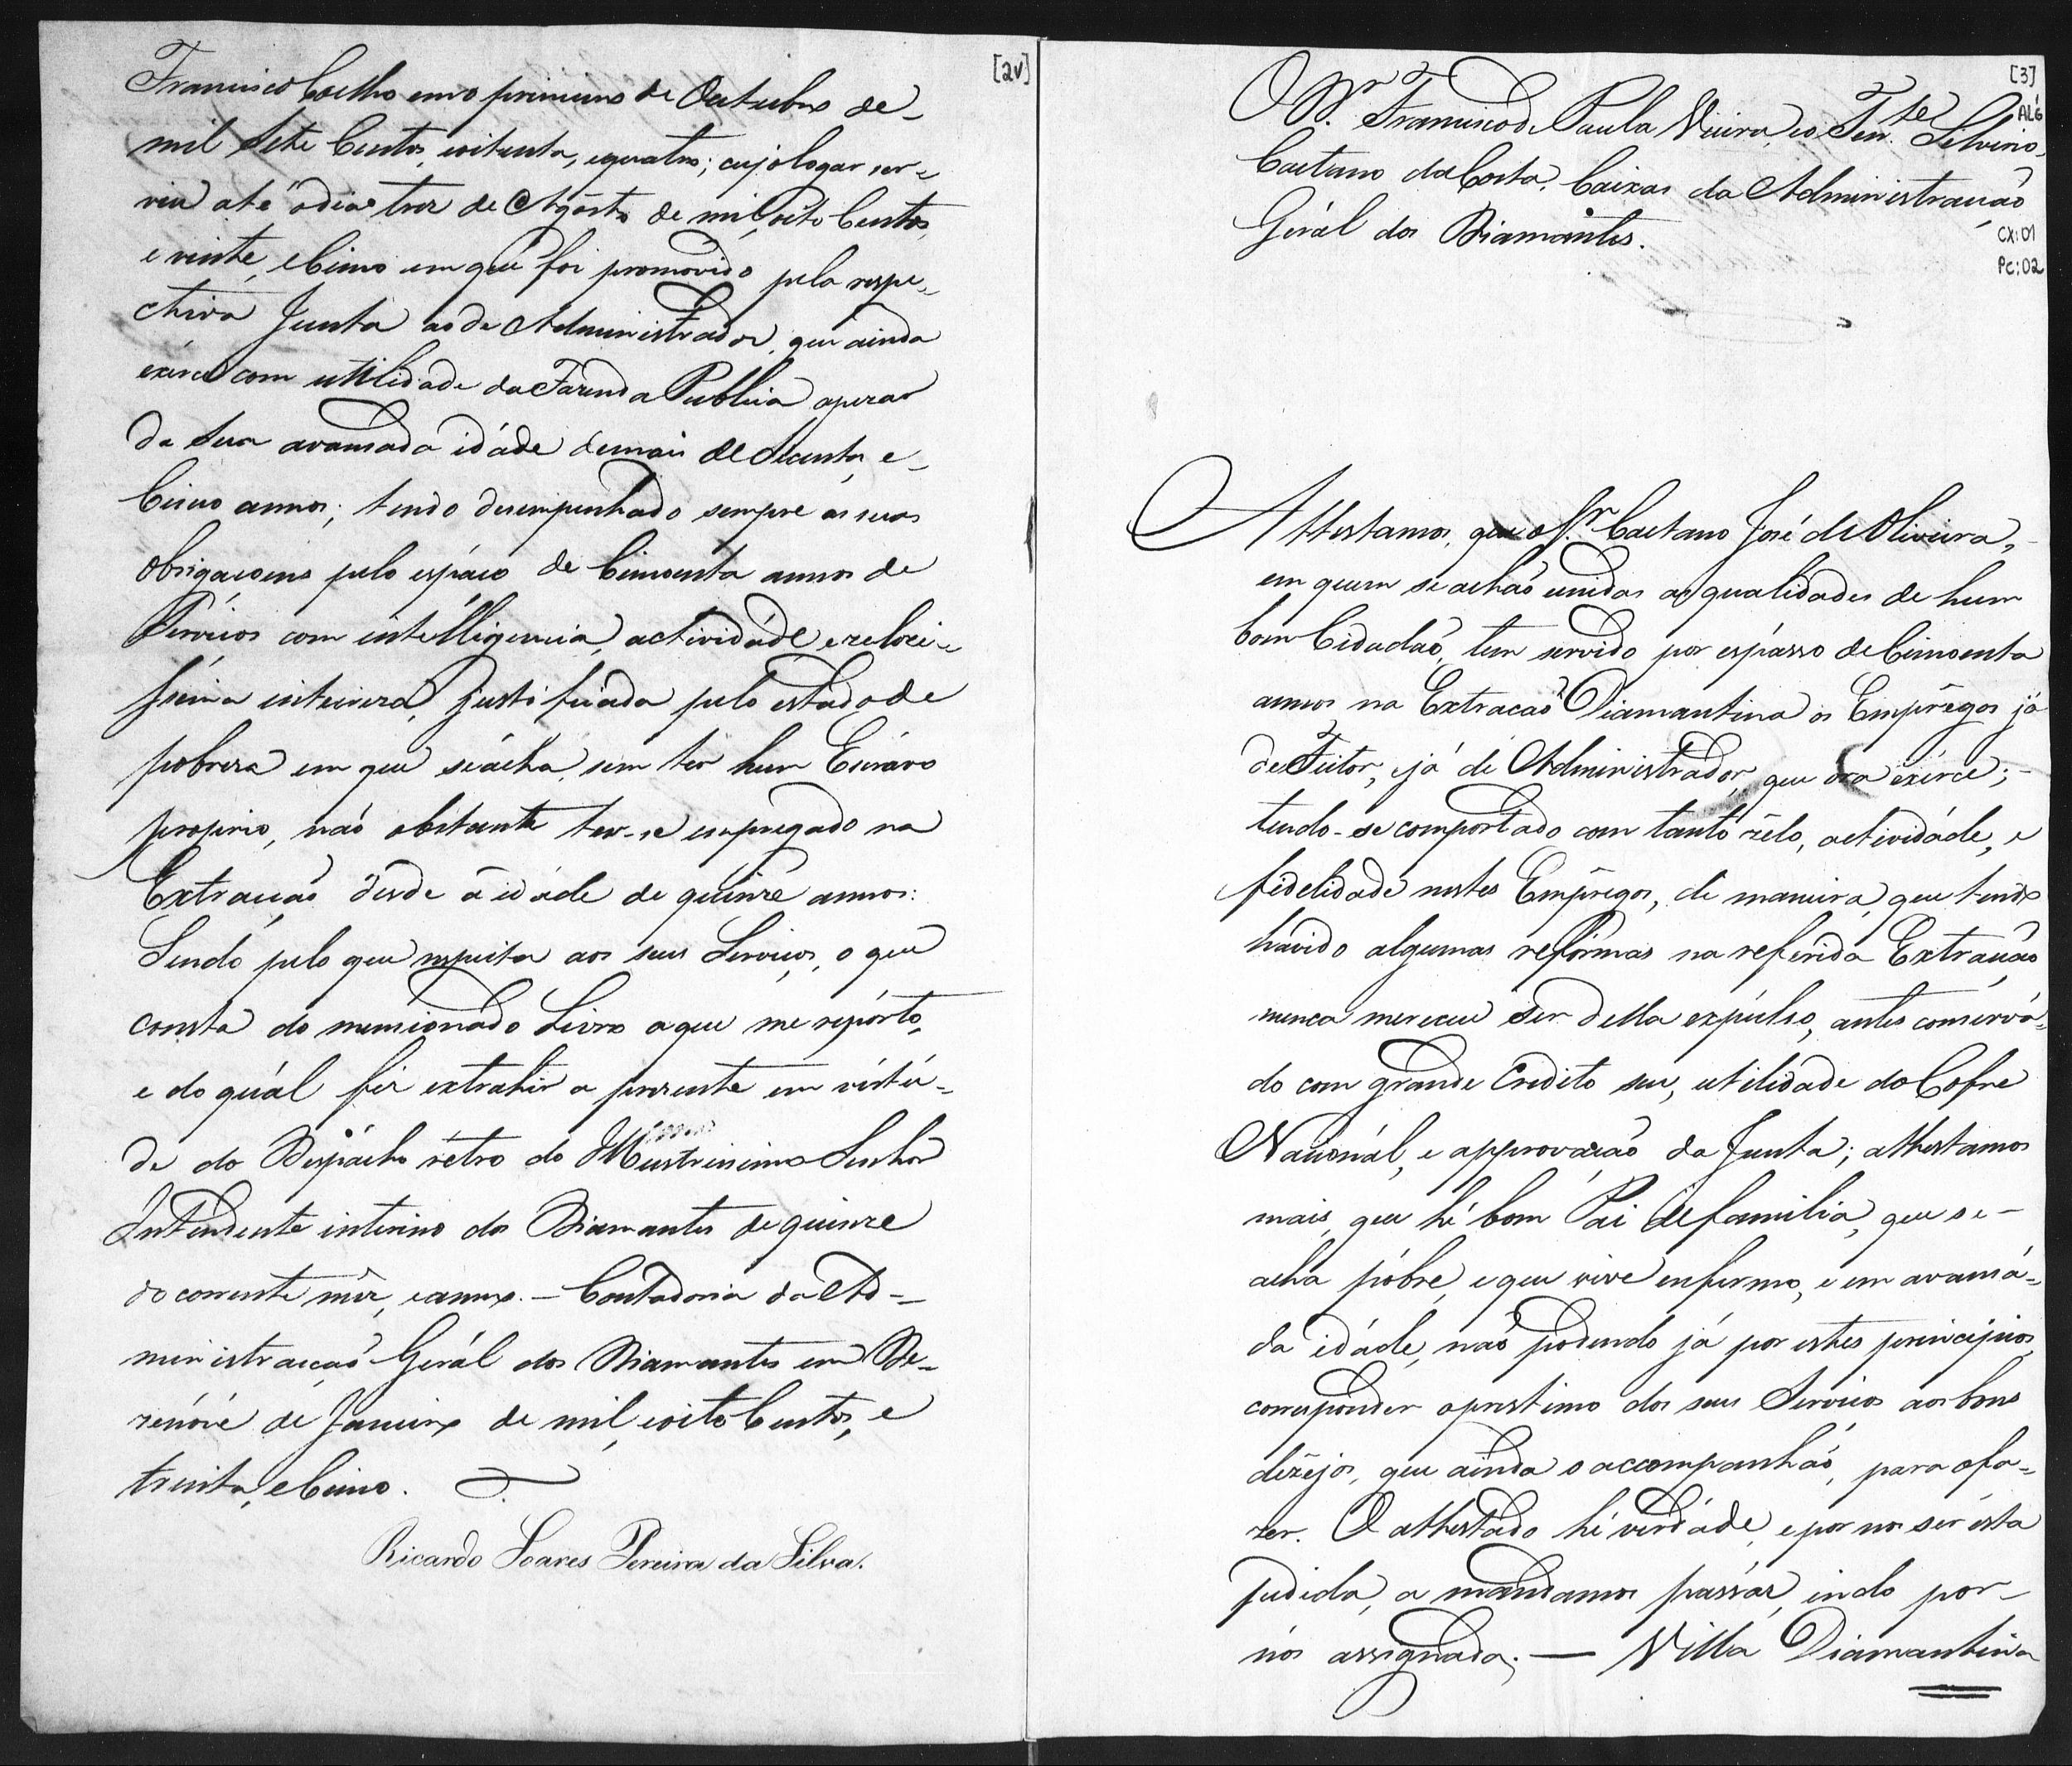 [2v]
Francisco Coelho em o primeiro de Outubro de
mil Sete Centos, oitenta, equatro; cujo logar ser-
viu até o dia trez de Agôsto de mil, oito Centos,
e vinte, e Cinco em que foi promovido pela respe-
ctiva Junta ao de Administrador, que ainda
exérce com utilidade da Fazenda Publica apezar
da Sua avansada idáde demais de Secenta, e
Cinco annos; tendo dezempenhado sempre as suas
Obrigaçoens pelo espáco de Cincoenta annos de
Servicos com intélligencia, actividáde e zelo: e in-
teireza, justificada pelo estado de
pobreza em que se ácha, sem ter hum Escrávo
proprio, naõ obstante ter-se empregado na
Extracçaõ dêsde a idáde de quinze annos:
Sendo pelo que respeita aos seus Servicos, o que
consta do mencionado Livro aque me repórto,
e do quál fiz extrahir a prezente em virtú-
de do Despácho rétro do Illustrissimo Senhor
Intendente interino dos Diamantes de quinze
do corrente mêz, eanno. — Contadoria da Ad-
ministracçaõ Gerál dos Diamantes em De-
zenóve de Janeiro de mil, oito Centos, e
trinta, e Cinco.
Ricardo Soares Pereira da Silva.
[3]
ALG
CX:01
PC:02
O Sr. Francisco de Paula Vieira, e o Ten.te Silvino
Caetano da Costa, Caixas da Administraçaõ
Gerál dos Diamantes.
Attestamos, que o Sr. Caetano José de Oliveira,
em quem se achaõ unidas as qualidades de hum
bom Cidadaõ, tem servido por espásso de Cincoenta
annos na Extracaõ Diamantina os Emprêgos já
de Feitor, e já de Administrador, que óra exérce;
tendo-se comportado com tanto zêlo, actividáde, e
fidelidade nestes Emprêgos, de maneira, que tendo
havido algumas refórmas na referida Extracçaõ
nunca mereceu ser della expúlso, antes conservá-
do com grande Credito seu, utilidade do Cofre
Nacionál, e approvaçaõ da Junta; attestamos
mais, que hé bom Pai de familia, que se
acha póbre, e que vive enfermo, e em avansá-
da idáde, naõ podendo já por estes principios,
corresponder o prestimo dos seus Servicos aos bons
dezêjos, que ainda o accompanhaõ, para o fa-
zer. O attestado hé verdáde, e por nos ser esta
pedida, a mandamos passár, indo por
nós assignada. — Villa Diamantina